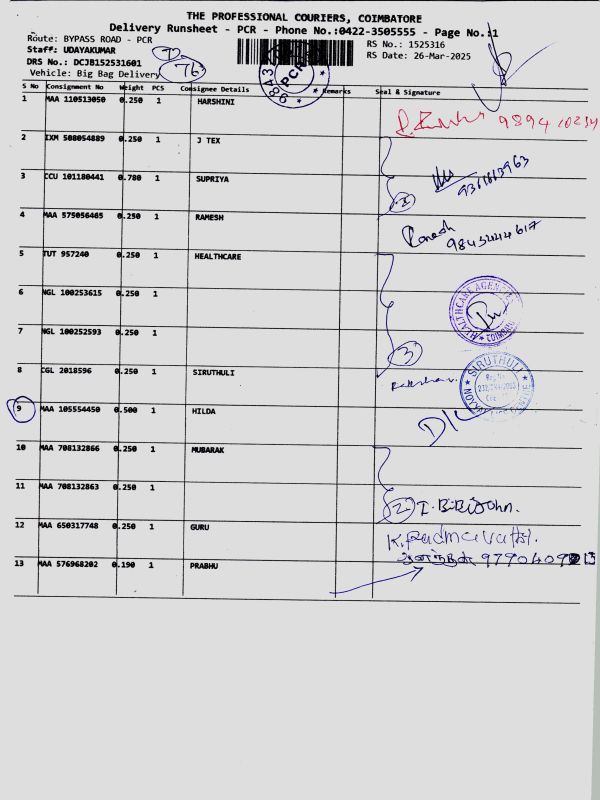 THE PROFESSIONAL COURIERS, COIMBATORE
Delivery Runsheet - PCR - Phone No.:0422-3505555 - Page No.:1
Route: BYPASS ROAD - PCR
RS No.: 1525316
Staff: UDAYAKUMAR
RS Date: 26-Mar-2025
DRS No.: DCJB152531601
Vehicle: Big Bag Delivery
76
PCR
S No Consignment No Weight PCS Consignee Details Remarks Seal & Signature
1 MAA 110513050 0.250 1 HARSHINI
9894110234
2 IXM 508054889 0.250 1 J TEX
3 CCU 101180441 0.780 1 SUPRIYA
2
9361613963
4 MAA 575056465 0.250 1 RAMESH
Ramesh
9843444617
5 TUT 957240 0.250 1 HEALTHCARE
6 NGL 100253615 0.250 1
HEALTHCARE AGENCIES
COIMBATORE
7 NGL 100252593 0.250 1
3
8 CGL 2018596 0.250 1 SIRUTHULI
SIRUTHULI
Reg.No.
9 MAA 105554450 0.500 1 HILDA
10 MAA 708132866 0.250 1 MUBARAK
11 MAA 708132863 0.250 1
2
12 MAA 650317748 0.250 1 GURU
K. Padmavathi.
13 MAA 576968202 0.190 1 PRABHU